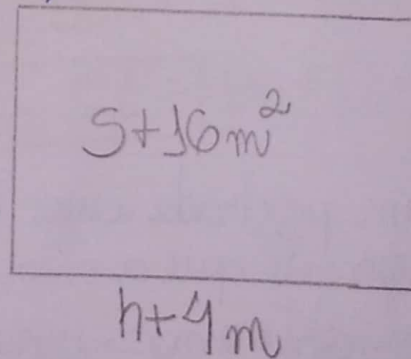 S+16m²
h+4m